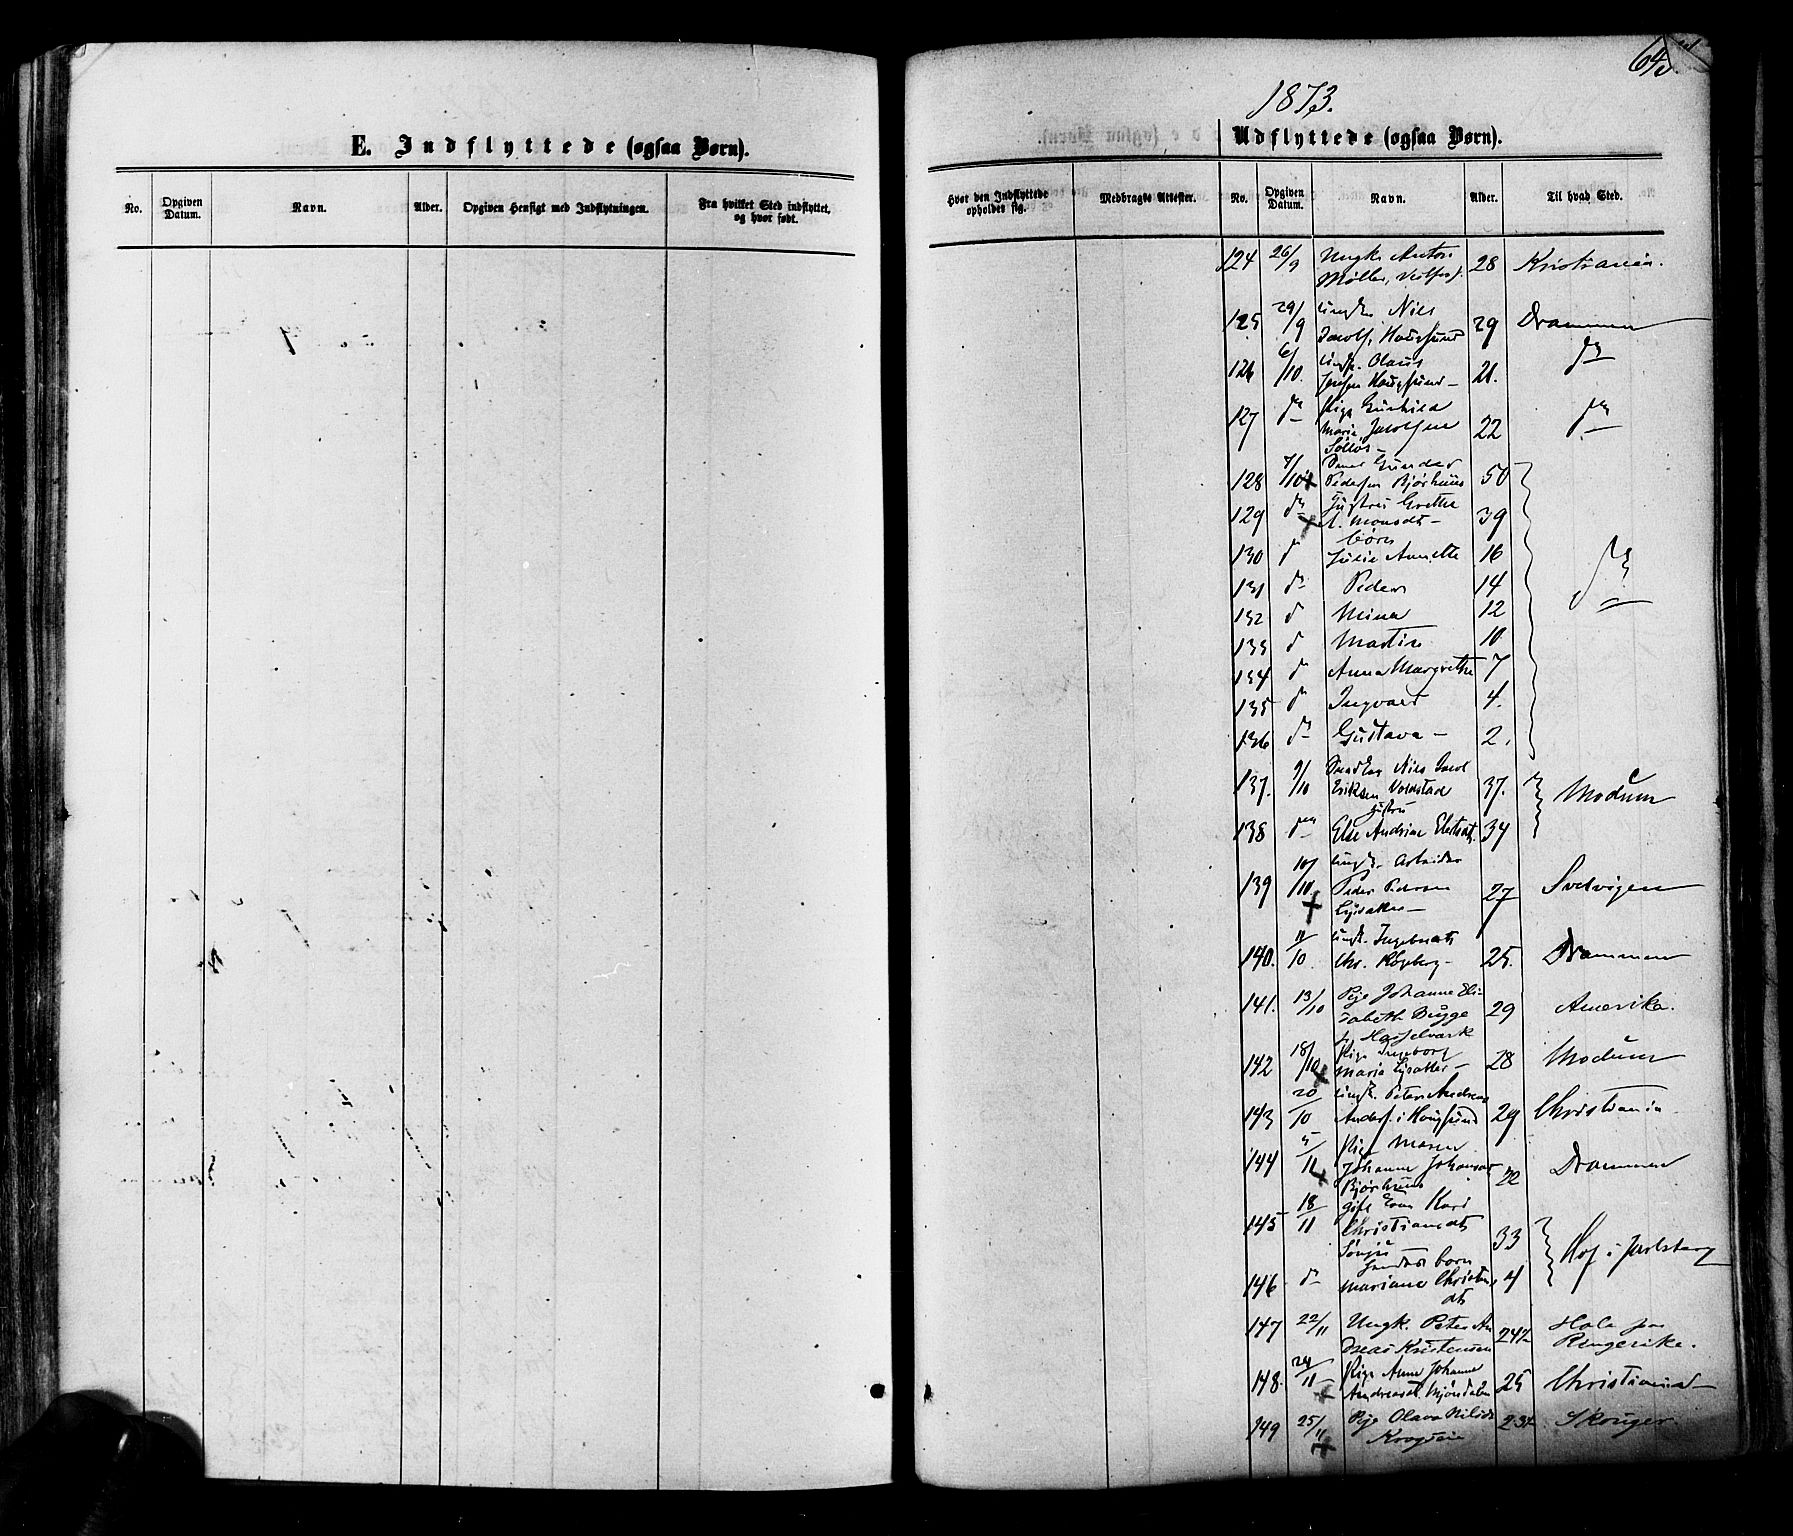 E. Indflyttede (ogsaa Børn).
No.
Opgiven Datum.
Navn.
Alder.
Opgiven Hensigt med Indflytningen.
Fra hvilket Sted indflyttet, og hvor født.
1873.
Udflyttede (ogsaa Børn).
Hvor den Indflyttede opholder sig.
Medbragte Attester.
No.
Opgiven Datum.
Navn.
Alder.
Til hvad Sted.
124 26/9 Ungk. Anton
Møller, 28 Kristiania.
125 29/9 Ungk. Niels
Jacobs. Hougsund 29 Drammen
126 6/10. Ungk. Olaus
Jensen Hougsund - 21. do
127 do Pige Gunhild
Maria Jacobsen 22 do
Solløs -
128 7/10 Gunder
Pedersen Bjørhuus 50
129 do Hustru Grethe
A. Monsdt - 39
Børn
130 do Julie Annette 16 do
131 do Peder 14
132 do Mina 12
133 do Martin 10
134 do Anna Margrethe 7
135 do Ingvald 4.
136 do Gustava - 2.
137. 9/10 Niels Jacob
Eriksen Voldstad 37. Modum
Hustru
138 do Else Andrine 34
139 10/10 Ungk. Arbeider
Peder Pedersen 27 Svelvigen
Lysaker -
140. 11/10. Ungk. Ingebret
Chr. 25. Drammen
141. 13/10 Pige Johanne Eli-
sabeth Bugge 29 Amerika.
Hasselværk
142 18/10 Pige Ingeborg
Maria Lysaker - 28 Modum
143 20/10 Ungk. Peter Andreas
Anders. i Hougsund 29 Christiania
144 5/11 Pige Maren
Johanne Johansdt 22 Drammen
Bjørhuus
145 18/11 Gift Kari
Christiansdt 33 Hof i Jarlsberg
146 do Mariane Christians 4
dt
147 22/11 Ungk. Peter An
dreas Kristensen 24½ Hole paa
Ringerike.
148. 24/11 Pige Anne Johanne
Andreasdt Mjøndalen 25 Christiania -
149 25/11 Pige Olava Nilsdt 23½ Skouger